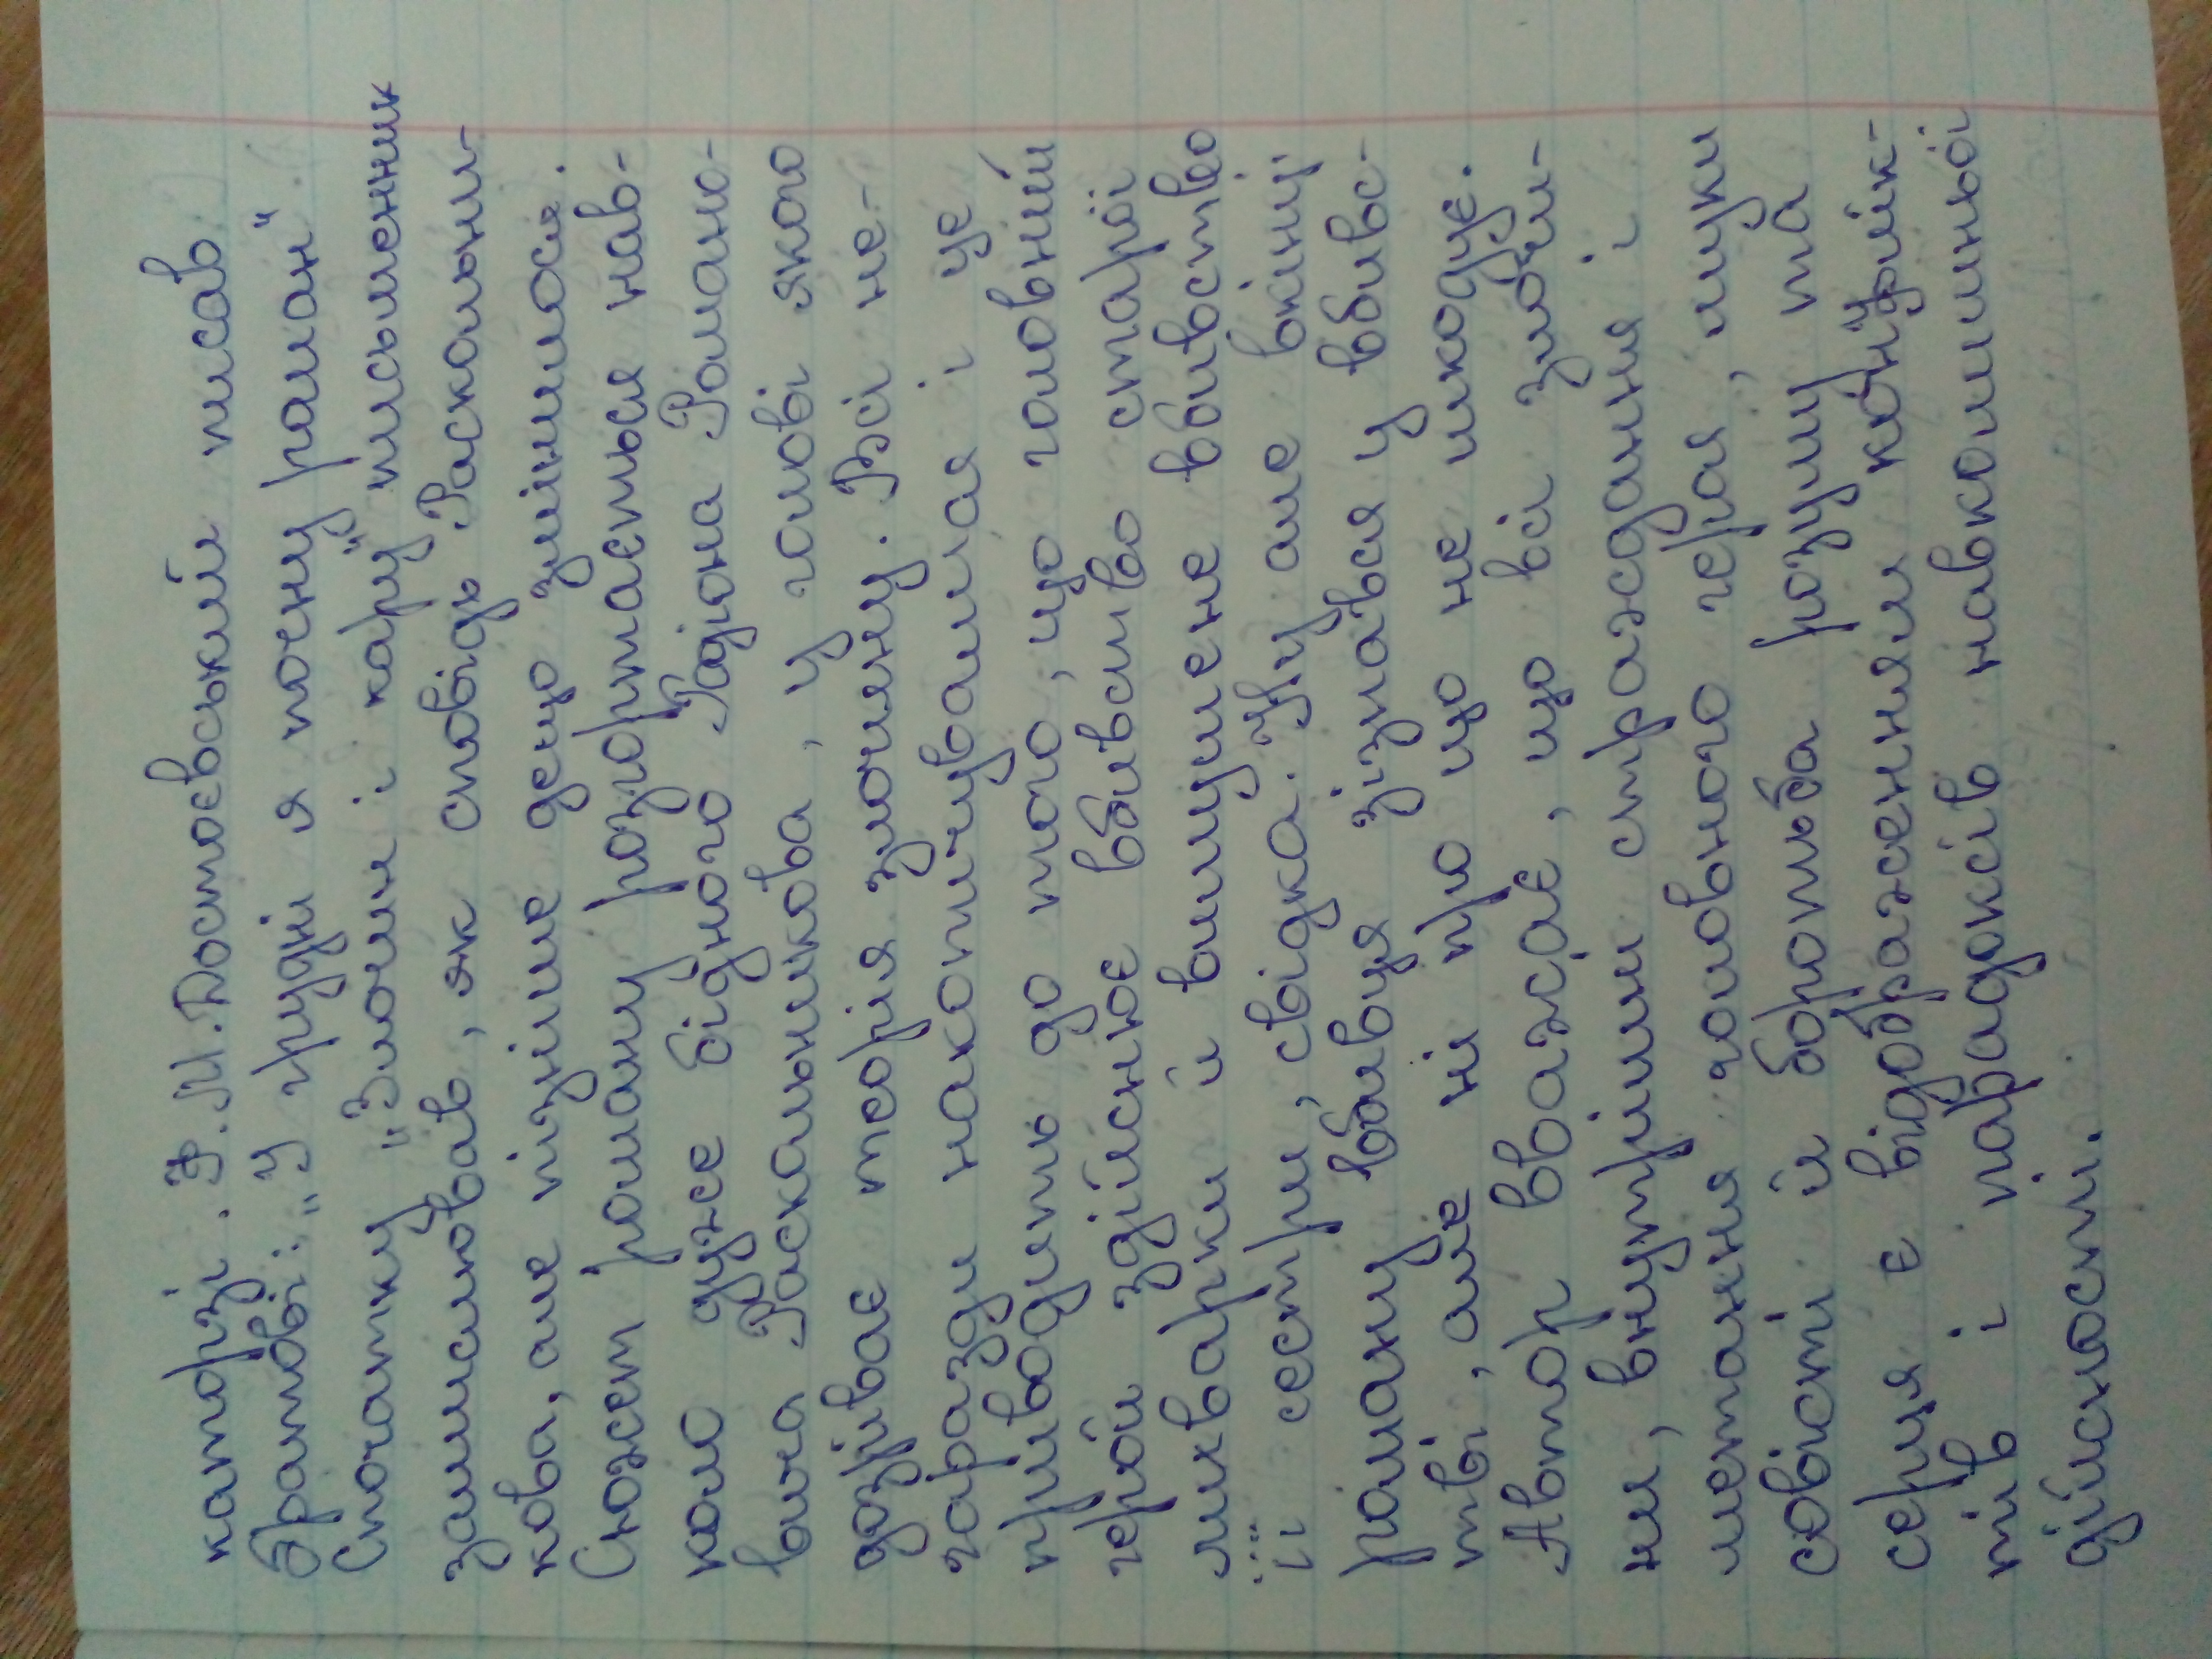 каторзі. Ф.М.Достоєвський писав
братові: „У грудні я почну роман".
Спочатку „Злочин і кару" письменник
замислював, як сповідь Раскольни-
кова, але пізніше дещо змінилося.
Сюжет роману розгортається нав-
коло дуже бідного Радіона Романо-
вича Раскольникова, у голові якого
дозріває теорія злочину. Всі не-
гаразди накопичувалися і це
приводить до того, що головний
герой здійснює вбивство старої
лихварки й вимушене вбивство
її сестри, свідка. Ну але вкінці
роману вбивця зізнався у вбивс-
тві, але ні про що не шкодує.
Автор вважає, що всі злочи-
ни, внутрішні страждання і
метання головного героя, муки
совісті й боротьба розуму та
серця є відображенням конфлік-
тів і парадоксів навколишньої
дійсності.